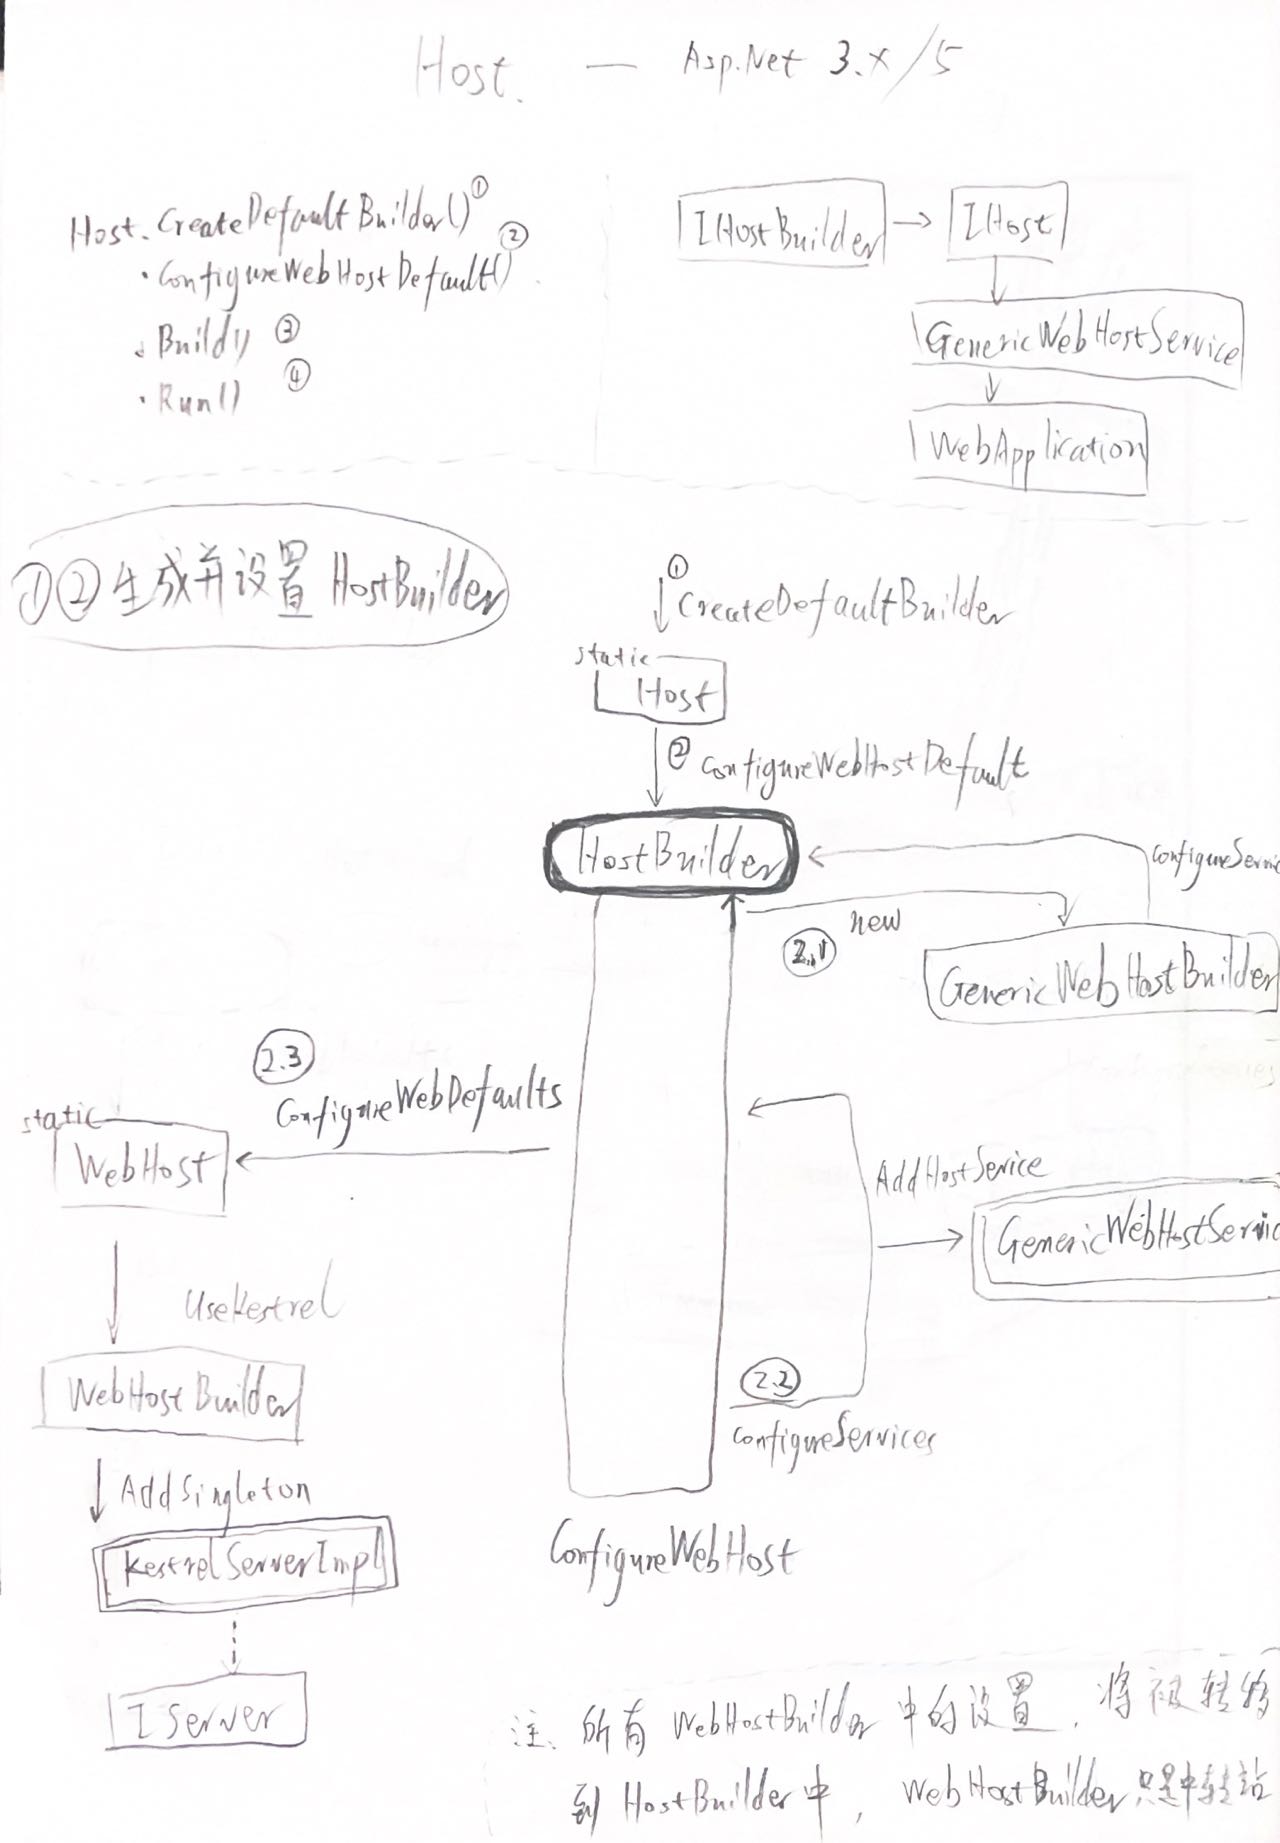 Host. — Asp.Net 3.x/5
Host.CreateDefaultBuilder() ①
.ConfigureWebHostDefault() ②
.Build() ③
.Run() ④
IHostBuilder → IHost
GenericWebHostService
WebApplication
①②生成并设置 HostBuilder
① CreateDefaultBuilder
static
Host
② ConfigureWebHostDefault
HostBuilder
ConfigureServic
2.1 new
GenericWebHostBuilder
2.3
ConfigureWebDefaults
static
WebHost
AddHostSerice
GenericWebHostServic
UseKestrel
WebHostBuilder
2.2
ConfigureServices
AddSingleton
KestrelServerImpl
ConfigureWebHost
IServer
注、所有 WebHostBuilder 中的设置，将被转移
到 HostBuilder 中，WebHostBuilder 只是中转站